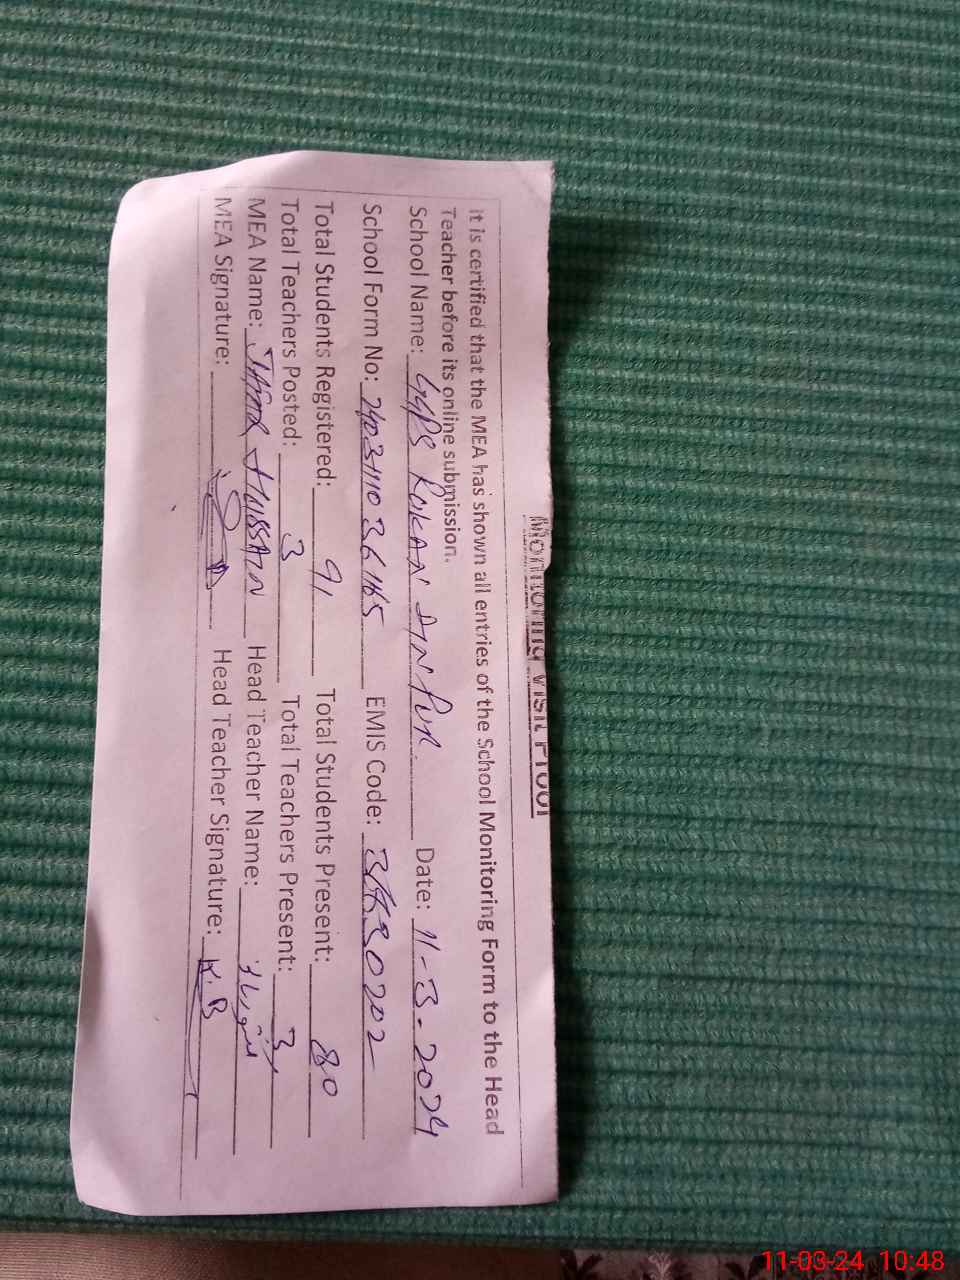 Monitoring Visit Proof
It is certified that the MEA has shown all entries of the School Monitoring Form to the Head
Teacher before its online submission.
School Name: GGPS RUKAN DIN PUR. Date: 11-3-2024
School Form No: EMIS Code:
Total Students Registered: 91 Total Students Present: 80
Total Teachers Posted: 3 Total Teachers Present: 3
MEA Name: HUSSAIN Head Teacher Name:
MEA Signature: Head Teacher Signature: K.B
11-03-24 10:48